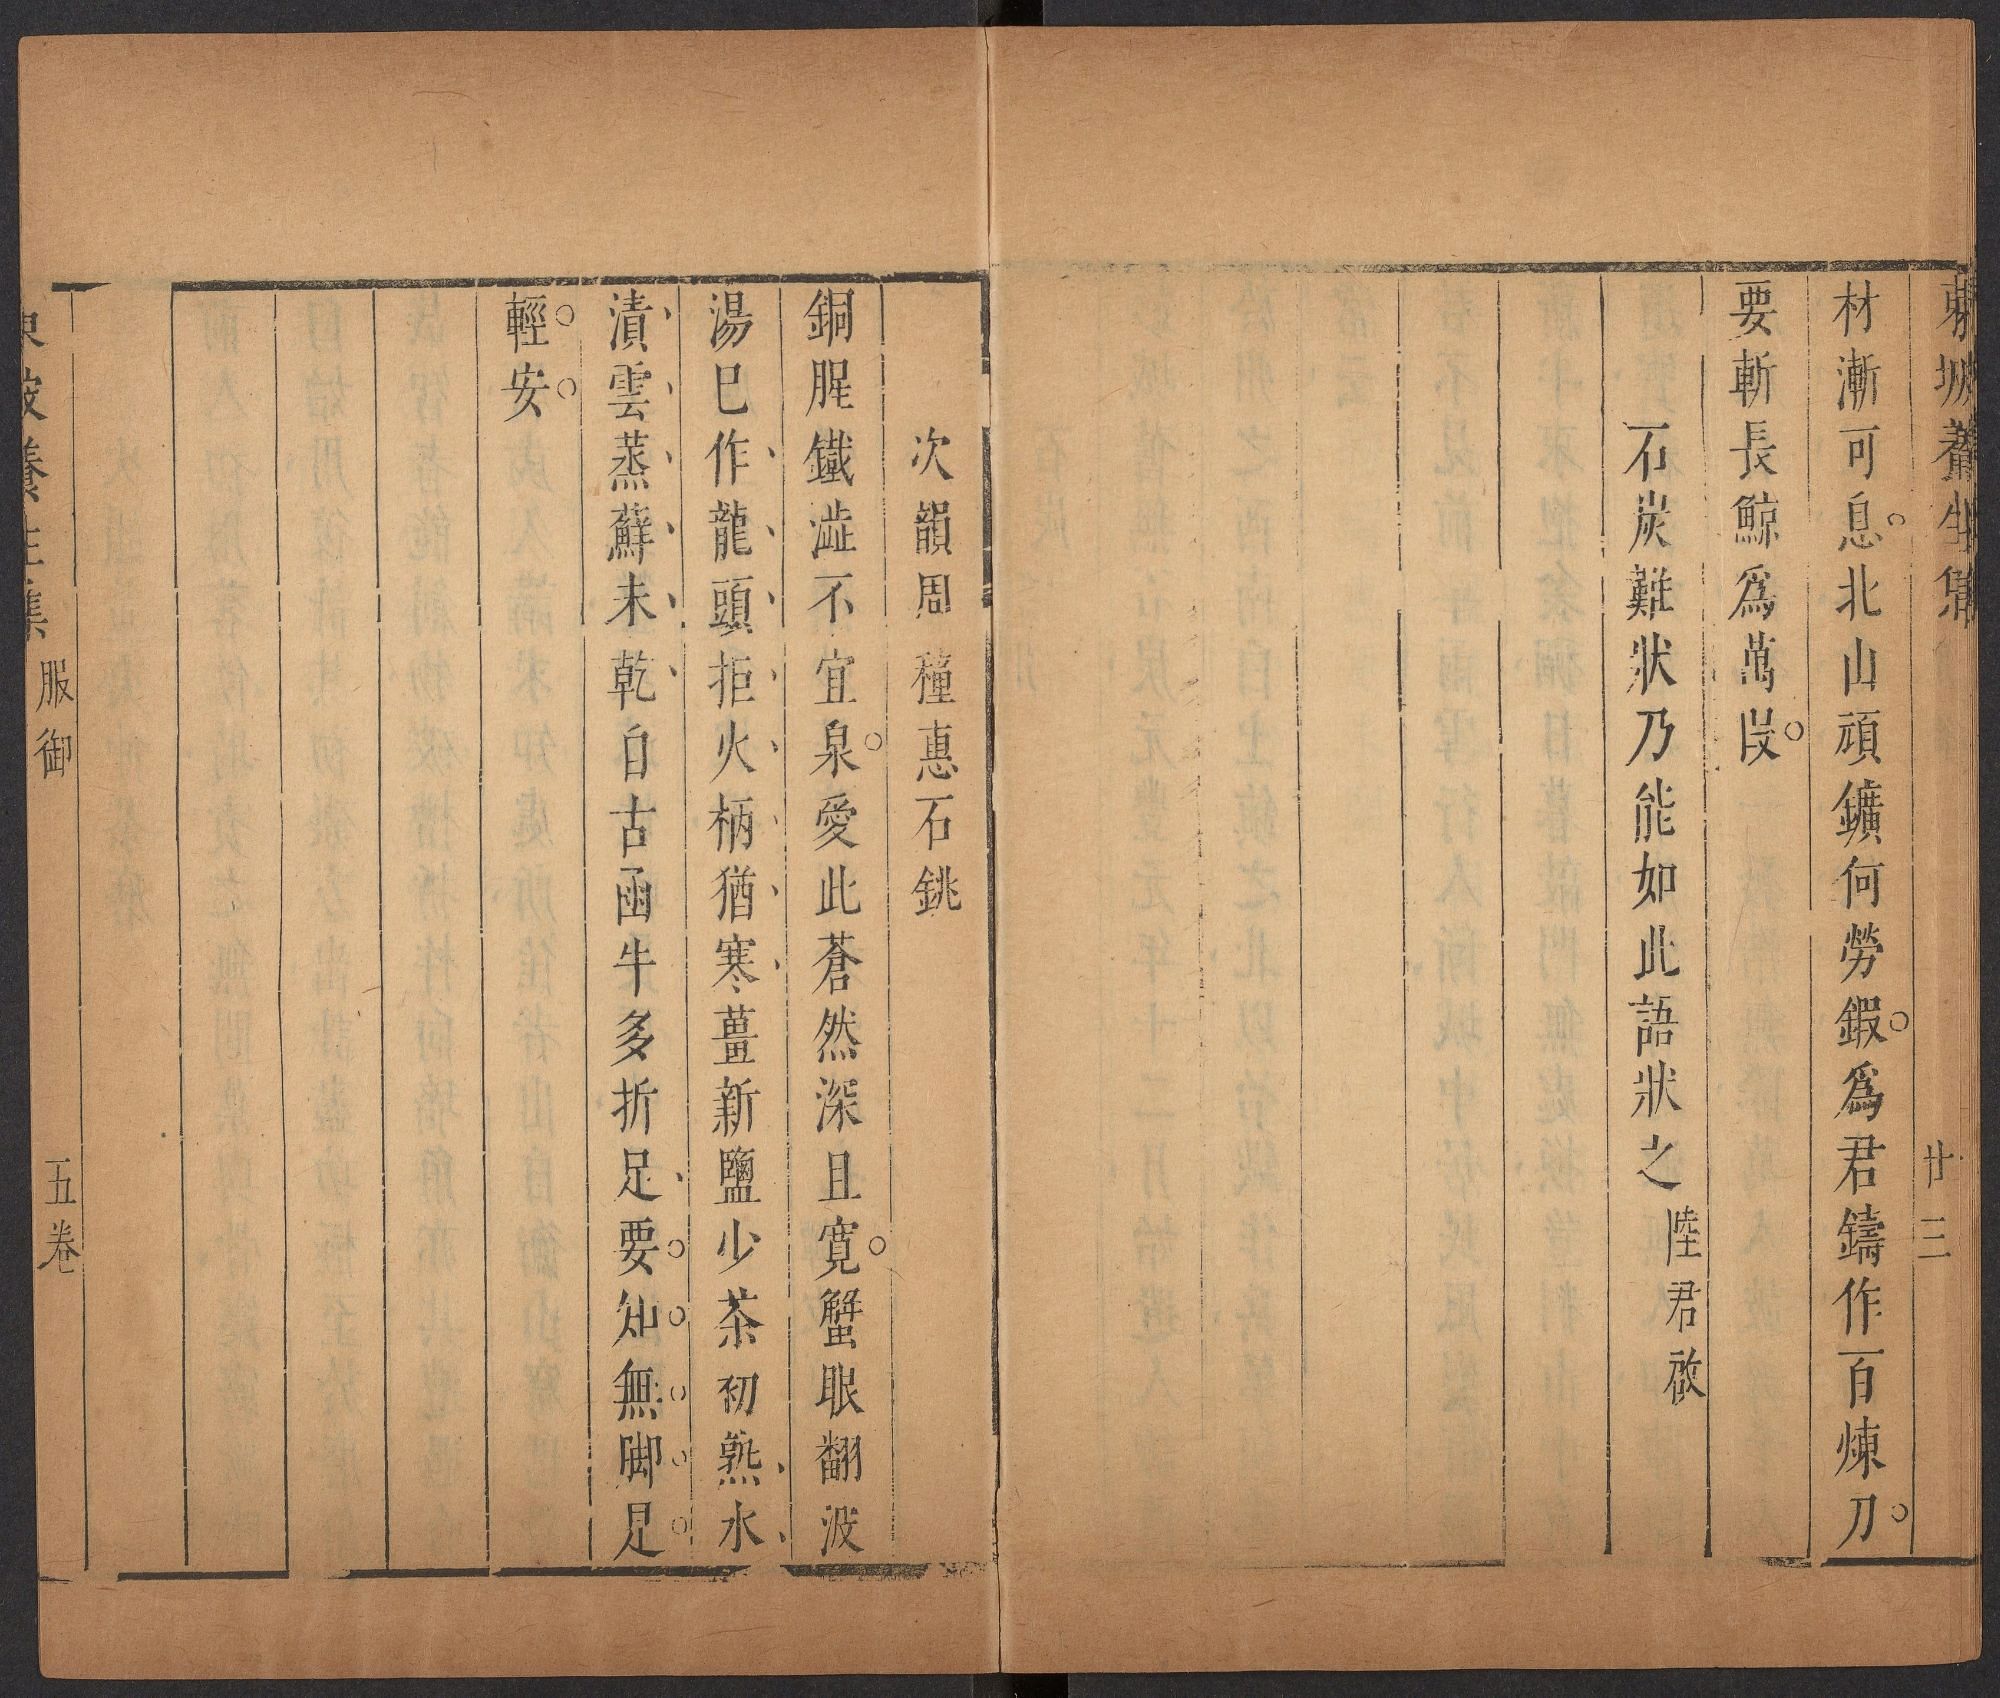 東坡養生集 廿三
材漸可息北山頑鑛何勞鍜爲君鑄作百煉刀
要斬長鯨爲萬段
石炭難狀乃能如此語狀之 陸君啟
次韻周穜惠石銚
銅腥鐵澁不宜泉愛此蒼然深且寛蟹眼翻波
湯巳作龍頭拒火柄猶寒薑新鹽少茶初熟水
漬雲蒸蘚未乾自古函牛多折足要知無脚是
輕安
東坡養生集 服御 五卷